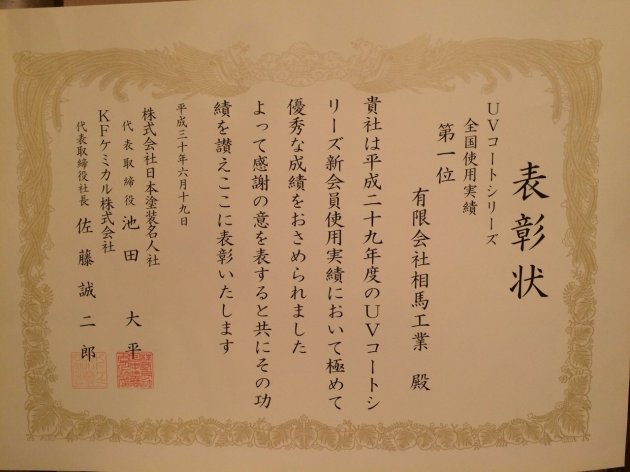 表彰状
UVコートシリーズ
全国使用実績
第一位
有限会社相馬工業 殿
貴社は平成二十九年度のUVコートシ
リーズ新会員使用実績において極めて
優秀な成績をおさめられました
よって感謝の意を表すると共にその功
績を讃えここに表彰いたします
平成三十年六月十九日
株式会社日本塗装名人社
代表取締役 池田 大平
KFケミカル株式会社
代表取締役社長 佐藤誠二郎